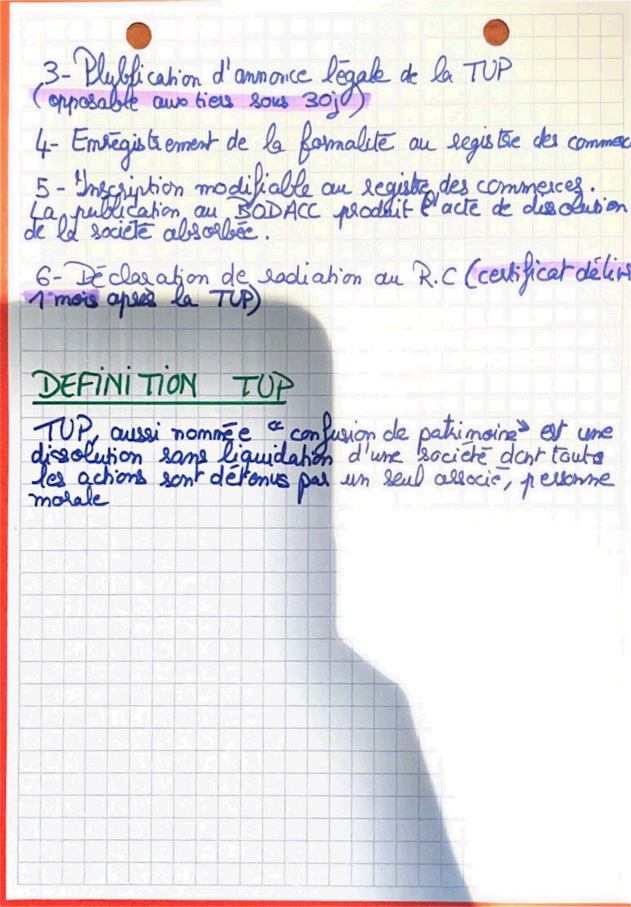 3- Plublication d'annonce légale de la TUP
(opposable aux tiers sous 30j)
4- Enregistrement de la formalité au registre des commerc
5- Inscription modifiable au registre des commerces.
La publication au BODACC produit l'acte de dissolution
de la société absorbée.
6- Déclaration de radiation au R.C (certificat déliv
1 mois après la TUP)
DEFINITION TUP
TUP, aussi nommée "confusion de patrimoine" est une
dissolution sans liquidation d'une société dont toute
les actions sont détenus par un seul associé, personne
morale